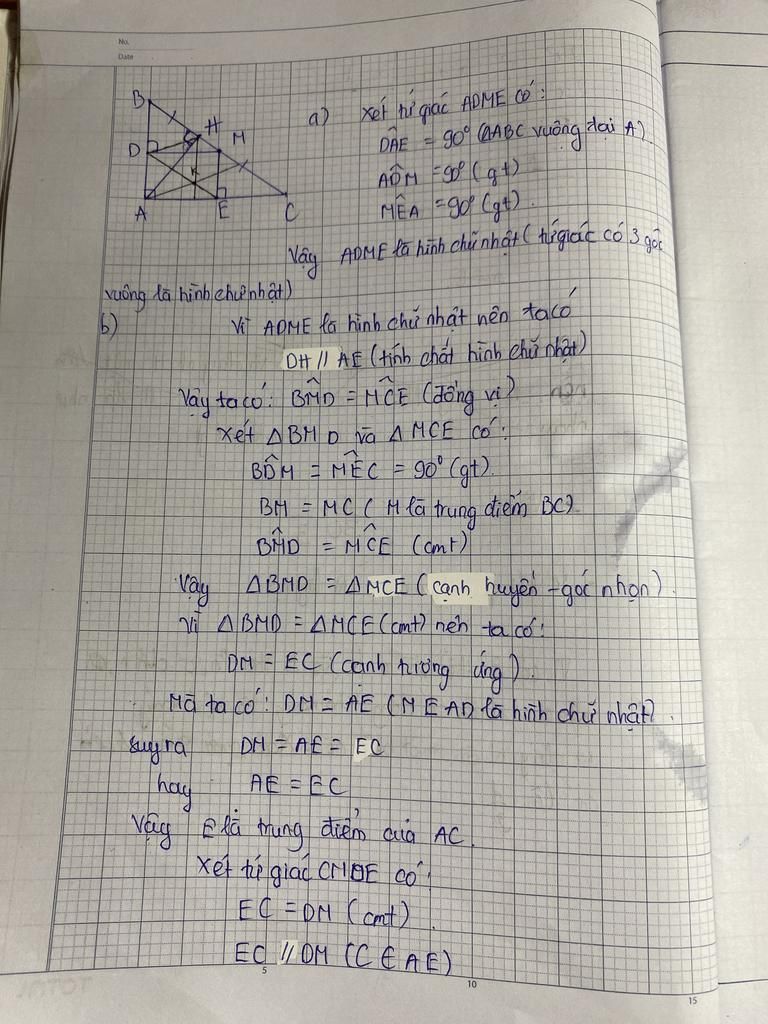 No.
Date
B
H
M
D
K
A
E
C
a) Xét tứ giác ADME có:
DÂE = 90° (ΔABC vuông tại A)
AD̂M = 90° (gt)
MÊA = 90° (gt).
Vậy ADME là hình chữ nhật (tứ giác có 3 góc
vuông là hình chữ nhật)
b) Vì ADME là hình chữ nhật nên ta có
DH // AE (tính chất hình chữ nhật)
Vậy ta có: BM̂D = MĈE (đồng vị)
Xét ΔBMD và ΔMCE có:
BD̂M = MÊC = 90° (gt)
BM = MC (M là trung điểm BC)
BM̂D = MĈE (cmt)
Vậy ΔBMD = ΔMCE (cạnh huyền - góc nhọn).
Vì ΔBMD = ΔMCE (cmt) nên ta có:
DM = EC (cạnh tương ứng).
Mà ta có: DM = AE (MEAD là hình chữ nhật).
suy ra DM = AE = EC
hay AE = EC
Vậy E là trung điểm của AC.
Xét tứ giác CMDE có:
EC = DM (cmt).
EC // DM (C ∈ AE)
5
10
15